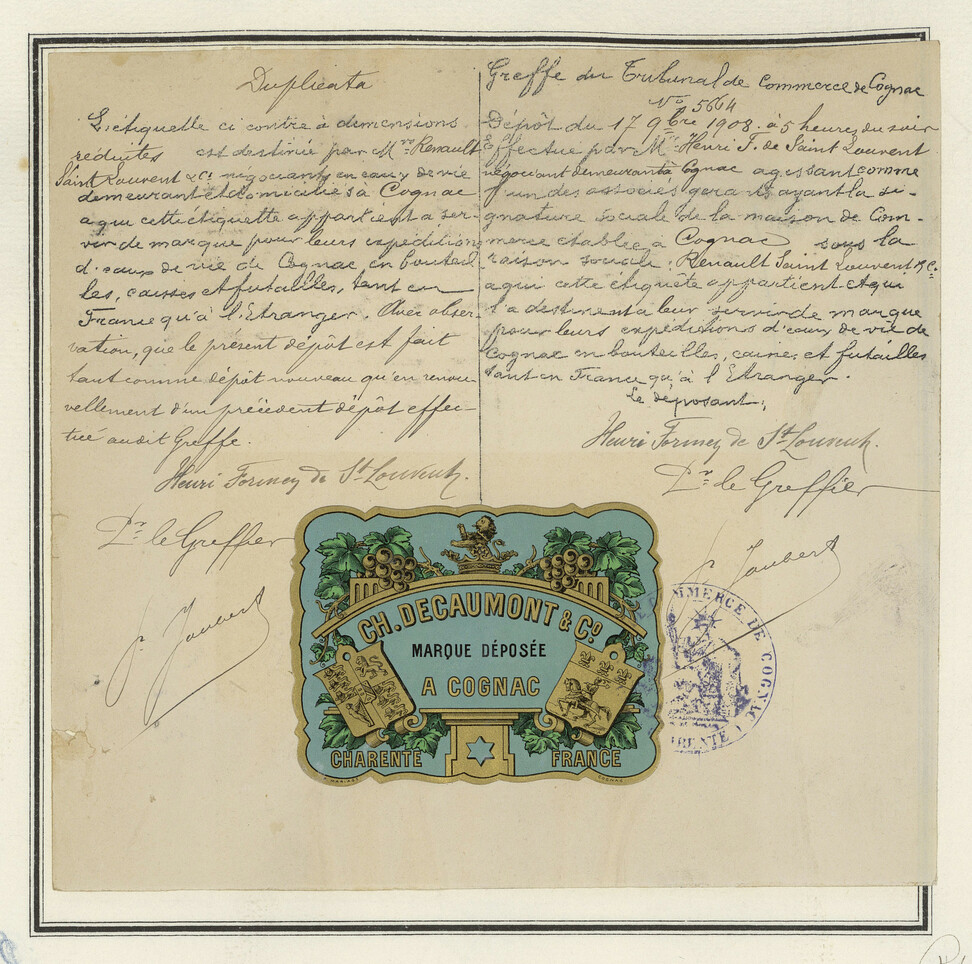 Duplicata
L'étiquette ci contre à dimensions
réduites est destinée par Mrs Renault
Saint Louvent & Ce négociants en eaux de vie
demeurant et domiciliés à Cognac
a qui cette étiquette appartient a ser-
vir de marque pour leurs expéditions
d'eaux de vie de Cognac en bouteil
les, caisses et futailles, tant en
France qu'à l'Etranger. Avec obser-
vation, que le présent dépôt est fait
tant comme dépôt nouveau qu'en renou-
vellement d'un précédent dépôt effec-
tué audit Greffe.
Henri Formey de St Louvent.
Pr le Greffier
J. Joubert
Greffe du Tribunal de Commerce de Cognac
No 5664
Dépôt du 17 9bre 1908. à 5 heures du soir
Effectué par Mr Henri F. de Saint Louvent
négociant demeurant à Cognac agissant comme
l'un des associés gérants ayant la si-
gnature sociale de la maison de Com-
merce établee à Cognac sous la
raison sociale: Renault Saint Louvent & Ce
a qui cette étiquête appartient et qui
l'a destinent a leur servir de marque
pour leurs expeditions d'eaux de vie de
Cognac en bouteilles, caisses et futailles
tant en France qu'à l'Etranger.
Le déposant,
Henri Formey de St Louvent.
Pr le Greffier
J. Joubert
CH. DECAUMONT & Co
MARQUE DÉPOSÉE
A COGNAC
CHARENTE FRANCE
COGNAC
MMERCE DE COGNAC
RENTE